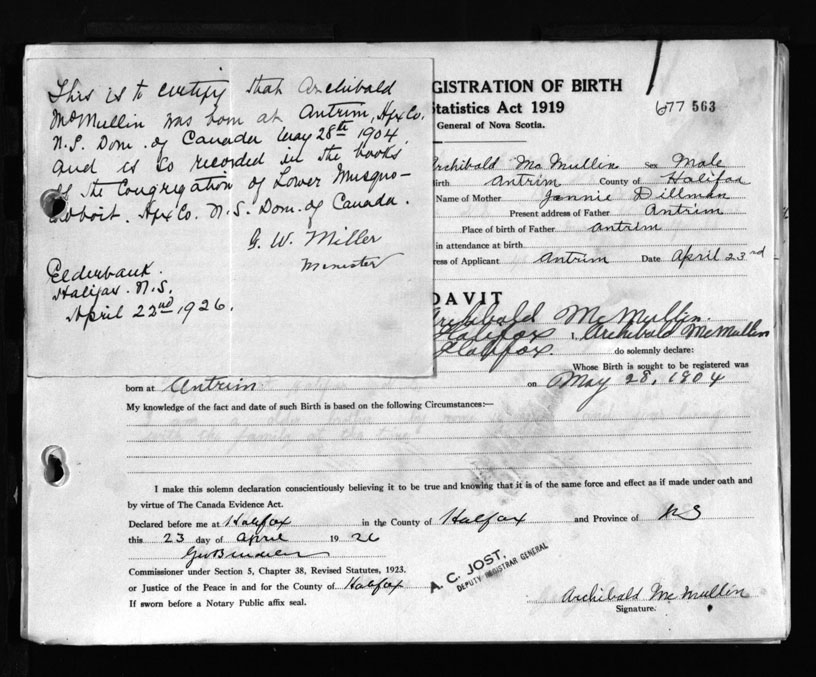 This is to certify that Archibald
McMullin was born at Antrim, Hfx Co.
N.S. Dom. of Canada May 28th 1904
and is so recorded in the books
of the Congregation of Lower Musquo-
doboit. Hfx Co. N.S. Dom. of Canada.
G. W. Miller
Minister
Elderbank.
Halifax. N.S.
April 22nd 1926.
GISTRATION OF BIRTH
Statistics Act 1919
General of Nova Scotia.
677 563
Archibald McMullin Sex Male
Birth Antrim County of Halifax
Name of Mother Jennie Dillman
Present address of Father Antrim
Place of birth of Father Antrim
in attendance at birth
ress of Applicant Antrim Date April 23rd
DAVIT
Archibald McMullin.
Halifax I, Archibald McMullin
Halifax. do solemnly declare:
Whose Birth is sought to be registered was
born at Antrim on May 28, 1904
My knowledge of the fact and date of such Birth is based on the following Circumstances:—
I make this solemn declaration conscientiously believing it to be true and knowing that it is of the same force and effect as if made under oath and
by virtue of The Canada Evidence Act.
Declared before me at Halifax in the County of Halifax and Province of NS
this 23 day of April 1926
Commissioner under Section 5, Chapter 38, Revised Statutes, 1923.
or Justice of the Peace in and for the County of Halifax
If sworn before a Notary Public affix seal.
A. C. JOST,
DEPUTY REGISTRAR GENERAL
Archibald McMullin
Signature.